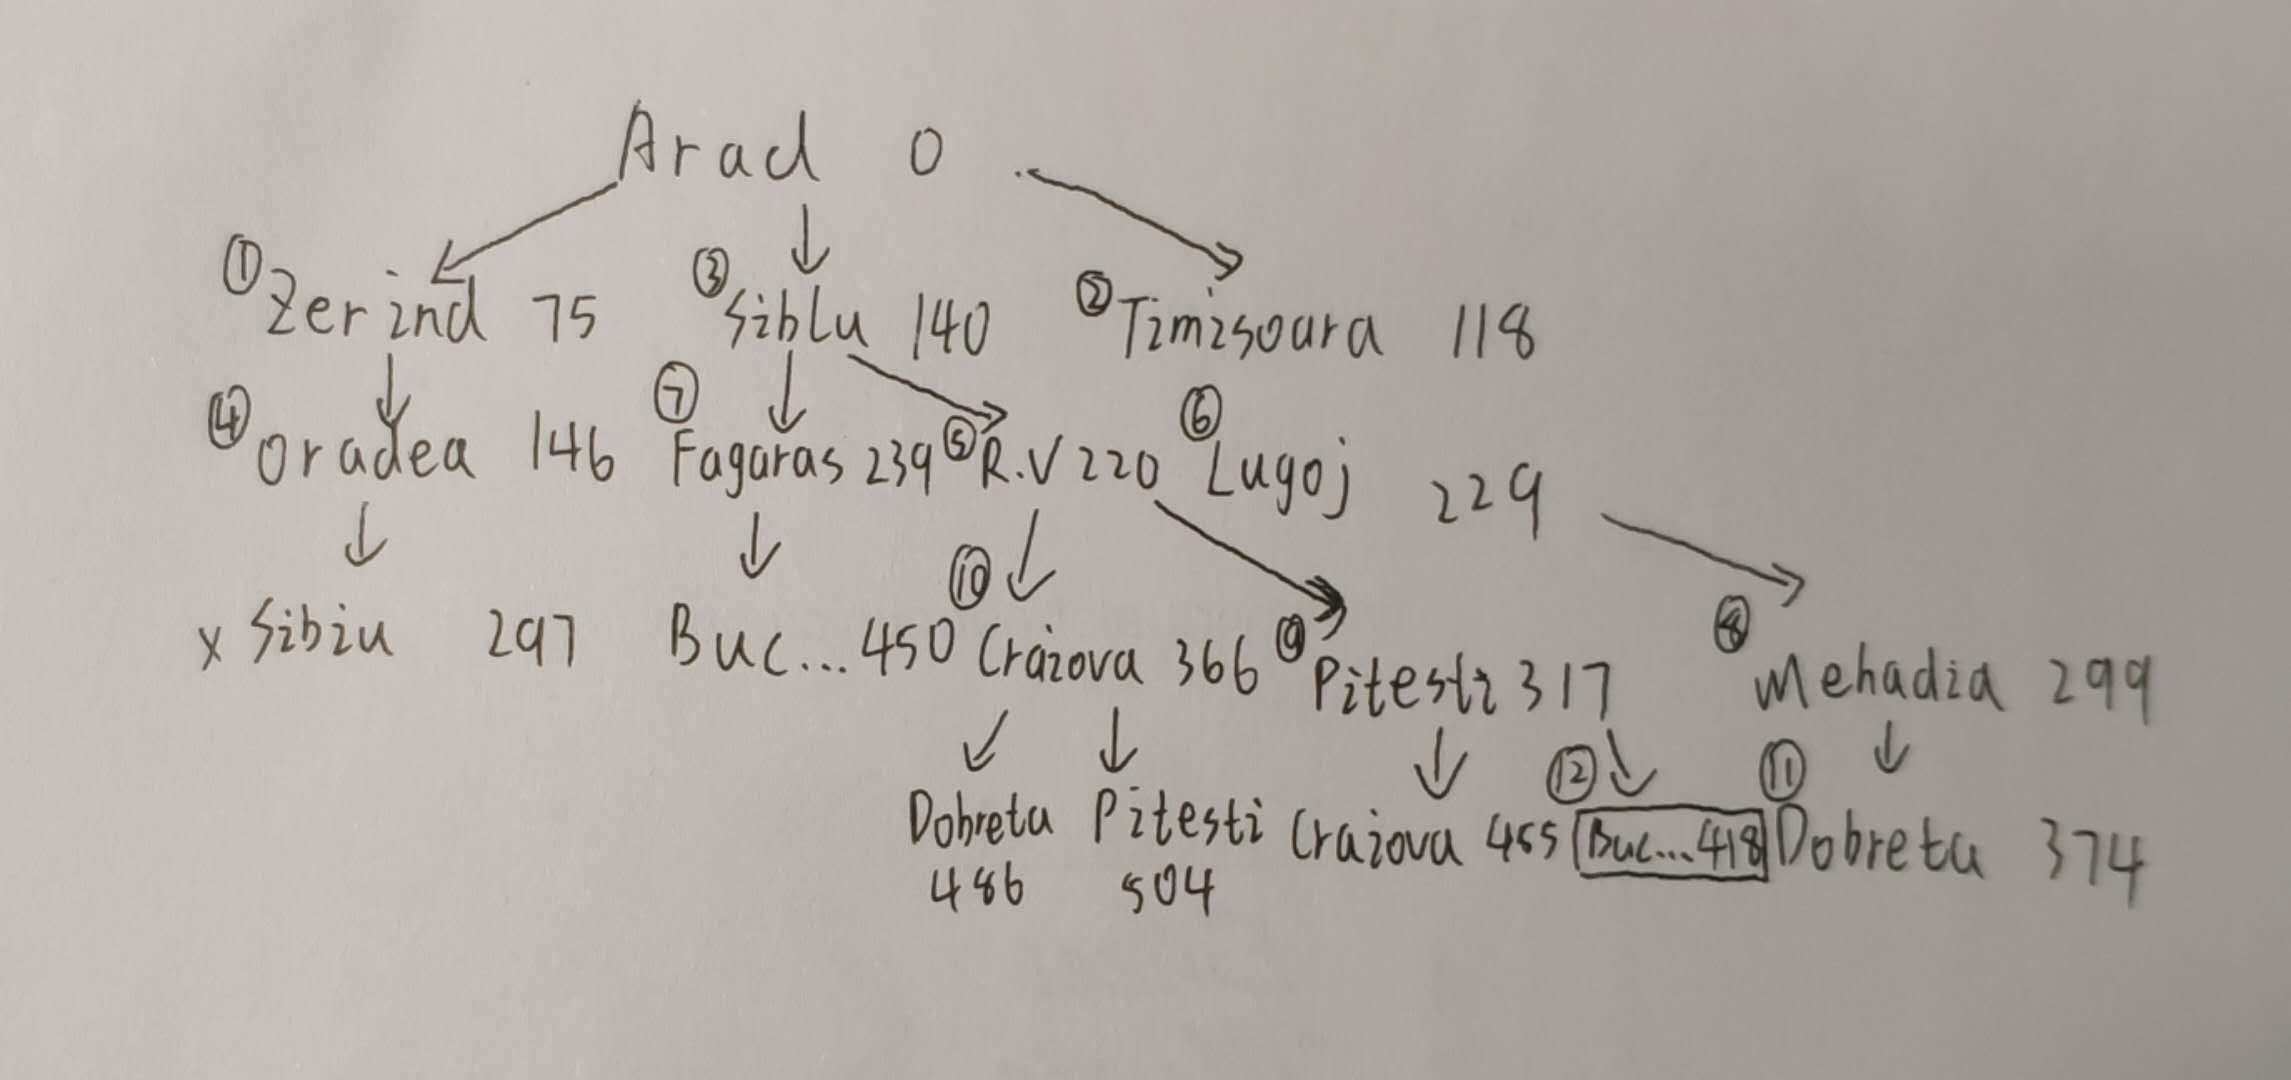 Arad 0
①Zerind 75 ③Siblu 140 ②Timisoara 118
④Oradea 146 ⑦Fagaras 239 ⑤R.V 220 ⑥Lugoj 229
x Sibiu 297 Buc... 450 ⑩Craiova 366 ⑨Pitesti 317 ⑧Mehadia 299
Dobreta Pitesti Craiova 455 ⑫Buc...418 ⑪Dobreta 374
486 504